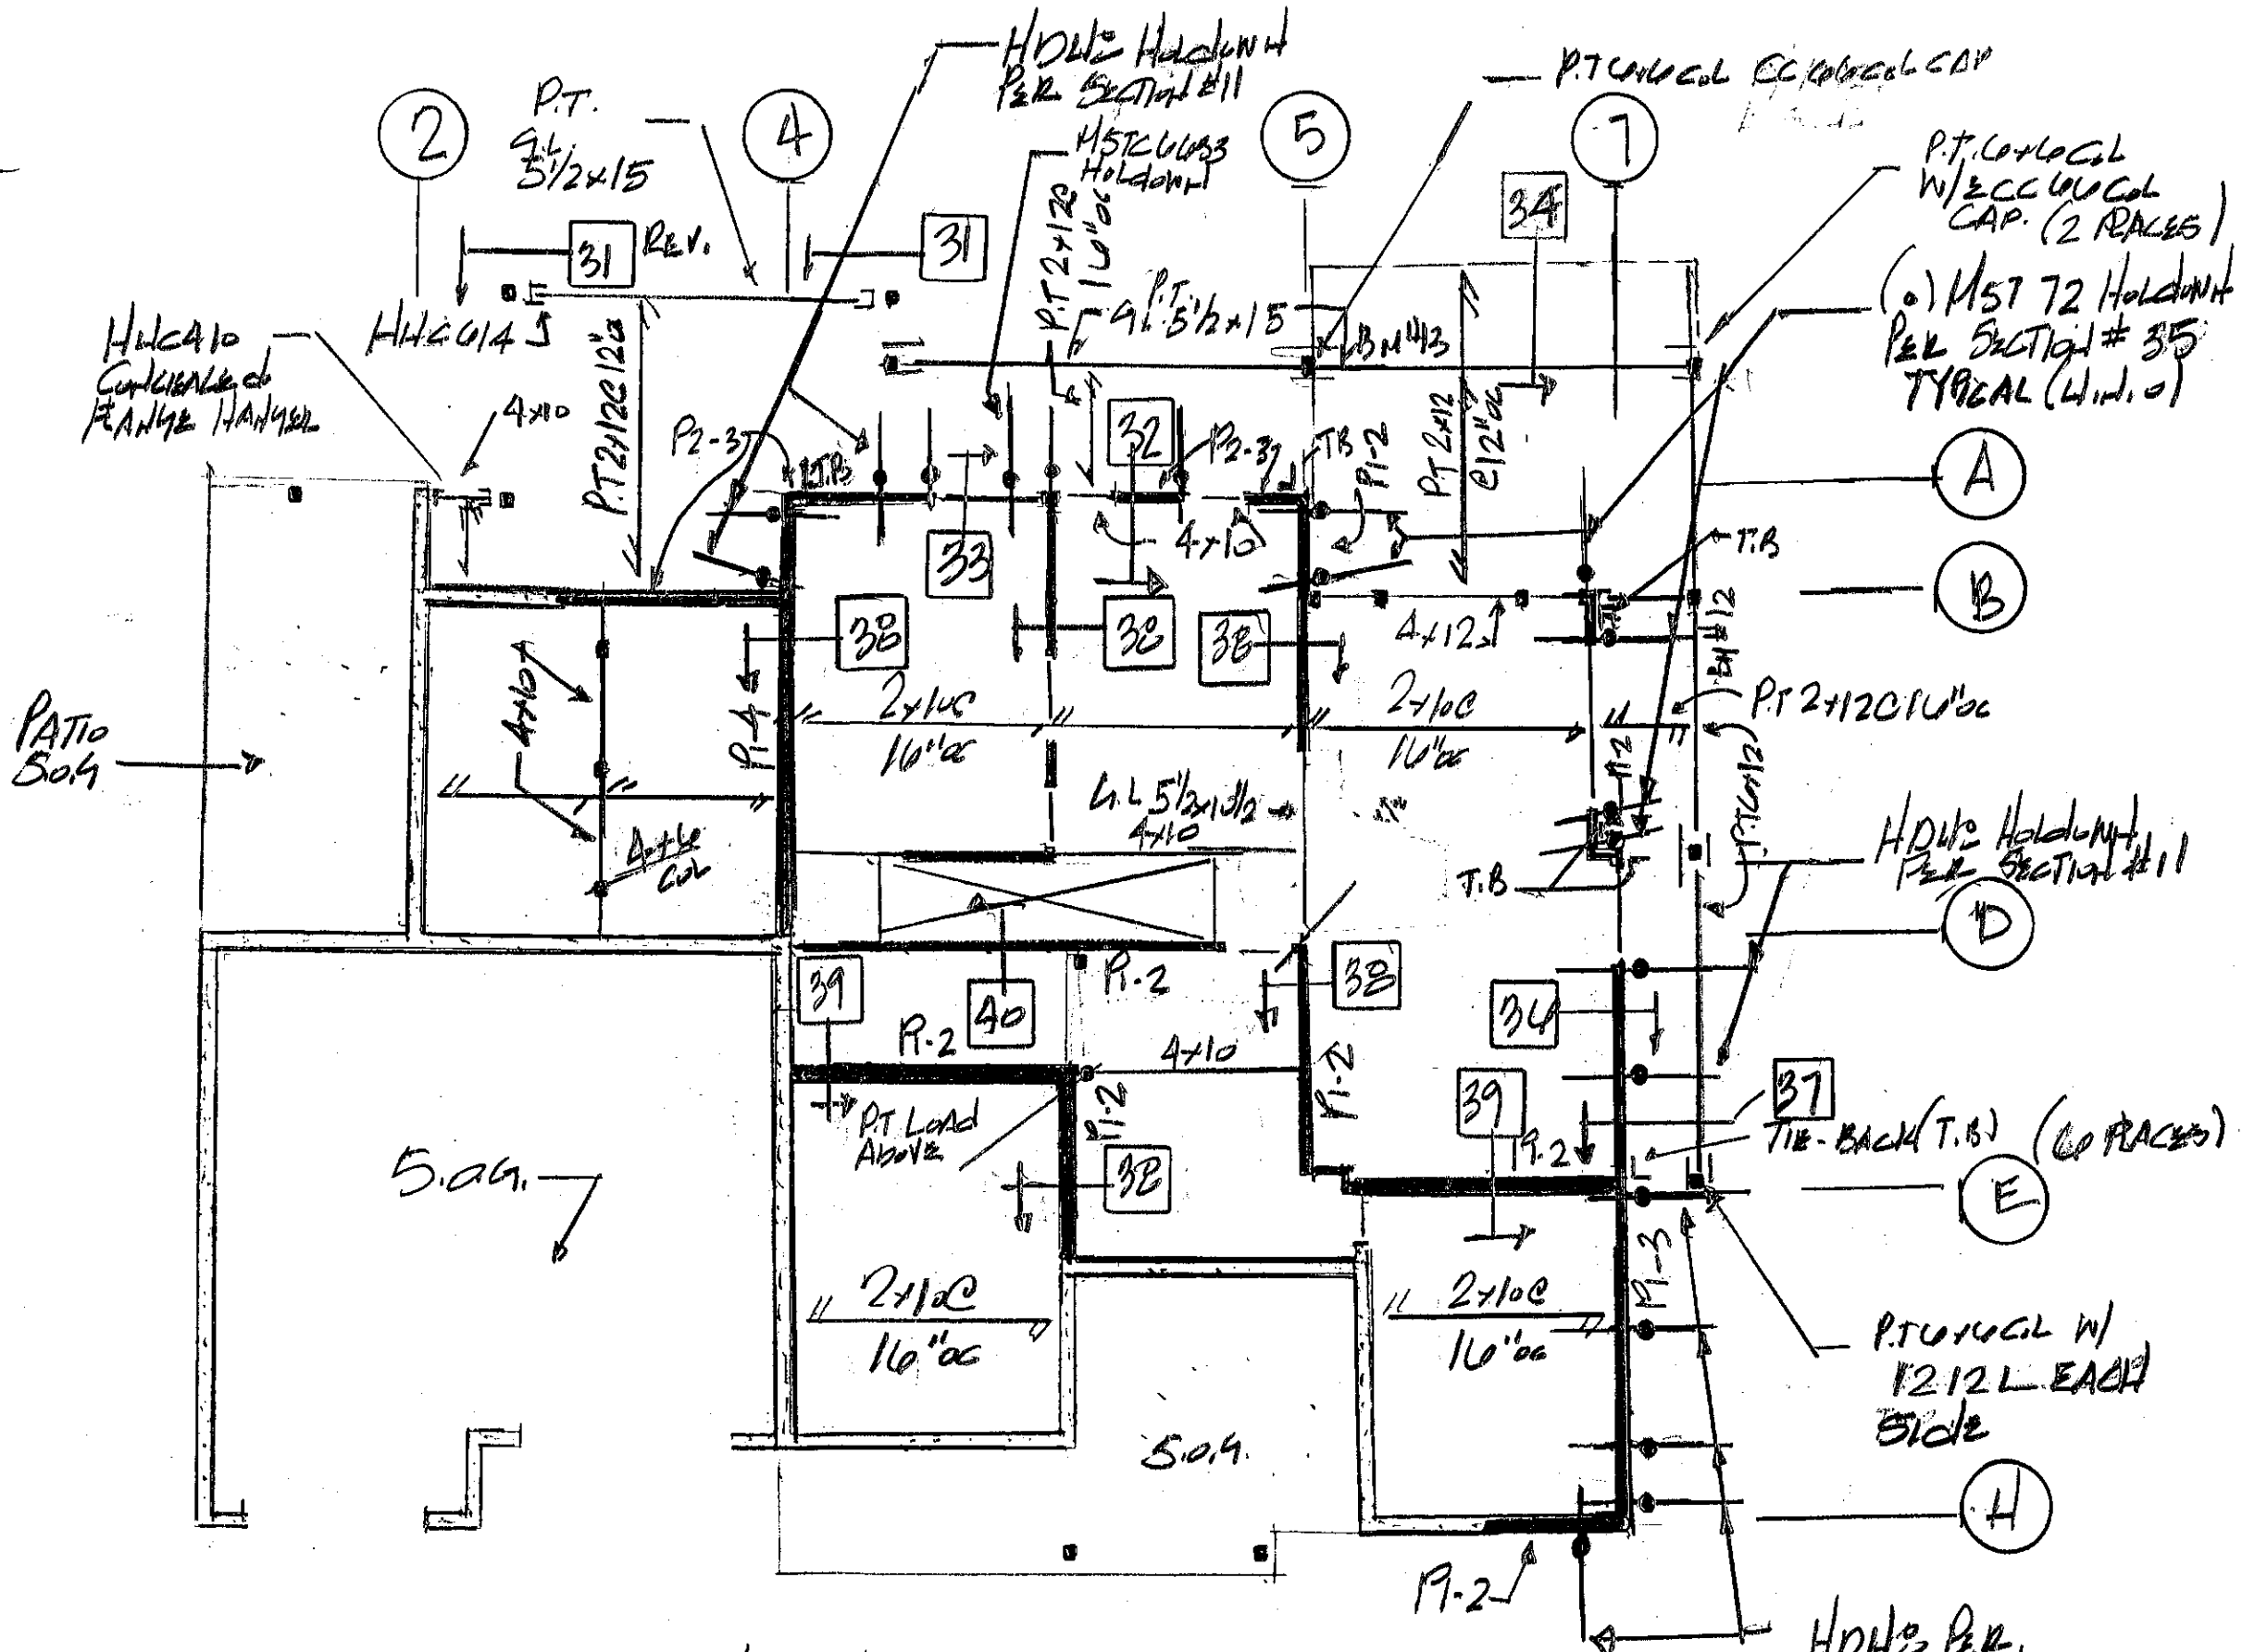 HDU's Holdown
PER SECTION #11
P.T 6x6 COL CC 66 COL CAP
2
P.T.
G.L.
5 1/2 x 15
4
MSTC66B3
Holdown
5
7
P.T. 6x6 COL
W/ ECC 66 COL
CAP. (2 PLACES)
34
31
REV.
31
P.T 2x12@
16"oc
P.T.
G.L. 5 1/2 x 15
BM #13
(•) MST 72 Holdown
PER SECTION # 35
TYPICAL (U.N.O)
HUC410
CONCEALED
FLANGE HANGER
HHC614
4x10
P.T 2x12@ 12"oc
P2-3
T.B
32
P2-3
TB
P1-2
P.T 2x12
@12"oc
A
33
4x10
T.B
B
4x10
38
38
38
4x12
BM #12
P.T 2x12@16"oc
PATIO
S.O.G
P1-4
2x10@
16"oc
2x10@
16"oc
#12
P.T 6x12
G.L 5 1/2 x 10 1/2
4x10
4x6
COL
T.B
HDU's Holdown
PER SECTION #11
D
39
40
P1-2
38
36
P1-2
4x10
P1-2
P1-2
39
37
P.T LOAD
ABOVE
TIE-BACK (T.B) (6 PLACES)
S.O.G.
38
P1-2
E
P1-3
2x10@
16"oc
2x10@
16"oc
P.T 6x6 COL W/
1212 L EACH
SIDE
S.O.G.
H
P1-2
HDU's PER